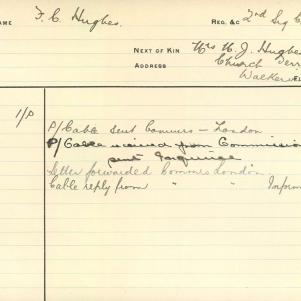 NAME F. C. Hughes. REG. &C 2nd Sig C
NEXT OF KIN Mrs H. J. Hughes
ADDRESS Church Terr
Walkerv
1/P
P/Cable sent Commrs – London
P/Cable received from Commission
sent
Letter forwarded Commrs London
Cable reply from " " Improv